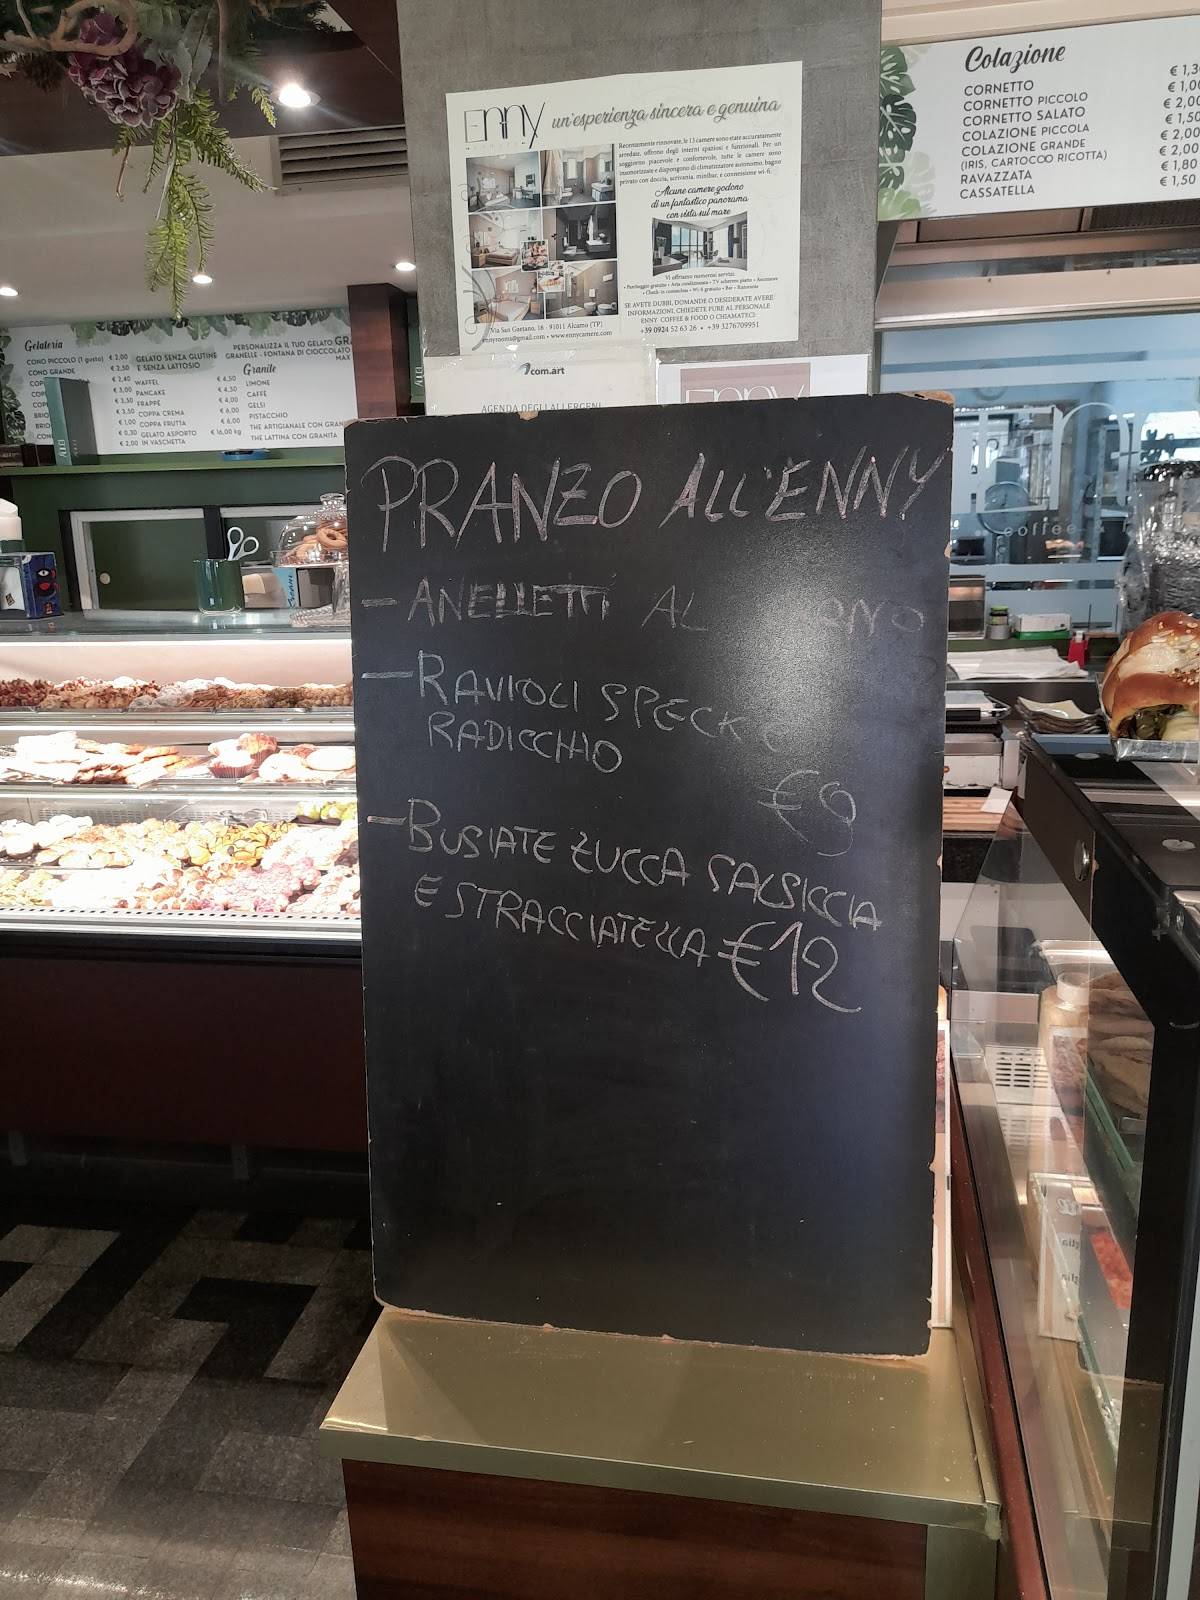 Colazione
CORNETTO
CORNETTO PICCOLO € 1,00
CORNETTO SALATO € 2,00
COLAZIONE PICCOLA € 1,50
COLAZIONE GRANDE € 2,00
(IRIS, CARTOCOO RICOTTA) € 2,00
RAVAZZATA € 1,80
CASSATELLA € 1,50
ENNY un'esperienza sincera e genuina
Recentemente rinnovate, le 13 camere sono state accuratamente
arredate, offrono degli interni spaziosi e funzionali. Per un
soggiorno piacevole e confortevole, tutte le camere sono
insonorizzate e dispongono di climatizzatore autonomo, bagno
privato con doccia, scrivania, minibar, e connessione wi-fi.
Alcune camere godono
di un fantastico panorama
con vista sul mare
Vi offriamo numerosi servizi:
• Parcheggio gratuito • Aria condizionata • TV schermo piatto • Ascensore
• Check-in contactless • Wi-fi gratuito • Bar • Ristorante
SE AVETE DUBBI, DOMANDE O DESIDERATE AVERE
INFORMAZIONI, CHIEDETE PURE AL PERSONALE
ENNY COFFEE & FOOD O CHIAMATECI:
+39 0924 52 63 26 • +39 3276709951
Via San Gaetano, 16 - 91011 Alcamo (TP)
ennyrooms@gmail.com • www.ennycamere.com
com.art
AGENDA DEGLI ALLERGENI
ENNY
Gelateria
CONO PICCOLO (1 gusto) € 2,00
CONO GRANDE € 2,50
€ 2,40
€ 3,00
€ 3,50
€ 3,50
€ 1,00
€ 0,30
€ 2,00
GELATO SENZA GLUTINE
E SENZA LATTOSIO
WAFFEL € 4,50
PANCAKE € 4,50
FRAPPÈ € 4,00
COPPA CREMA € 6,00
COPPA FRUTTA € 6,00
GELATO ASPORTO € 16,00 kg
IN VASCHETTA
PERSONALIZZA IL TUO GELATO
GRANELLE - FONTANA DI CIOCCOLATO
MAX
Granite
LIMONE
CAFFÈ
GELSI
PISTACCHIO
THE ARTIGIANALE CON
THE LATTINA CON GRANITA
PRANZO ALL'ENNY
- ANELLETTI AL
- RAVIOLI SPECK
RADICCHIO
€9
- BUSIATE ZUCCA SALSICCIA
E STRACCIATELLA €12
coffee